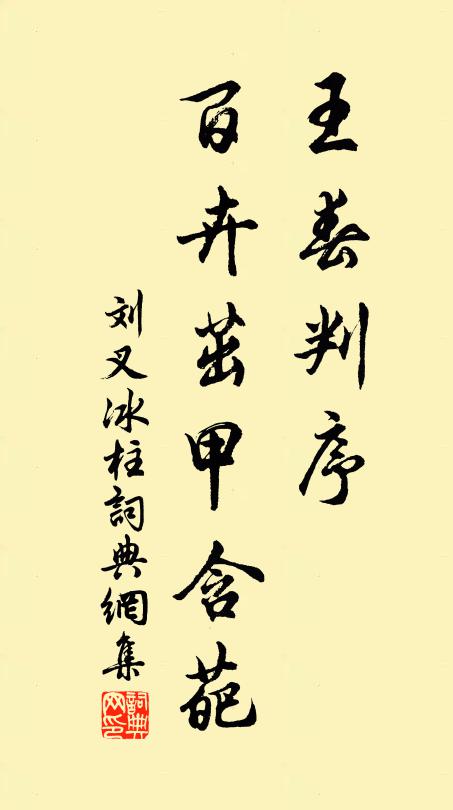 王春判序
百卉茁甲含葩
刘叉冰柱詞典網集
詞典網印